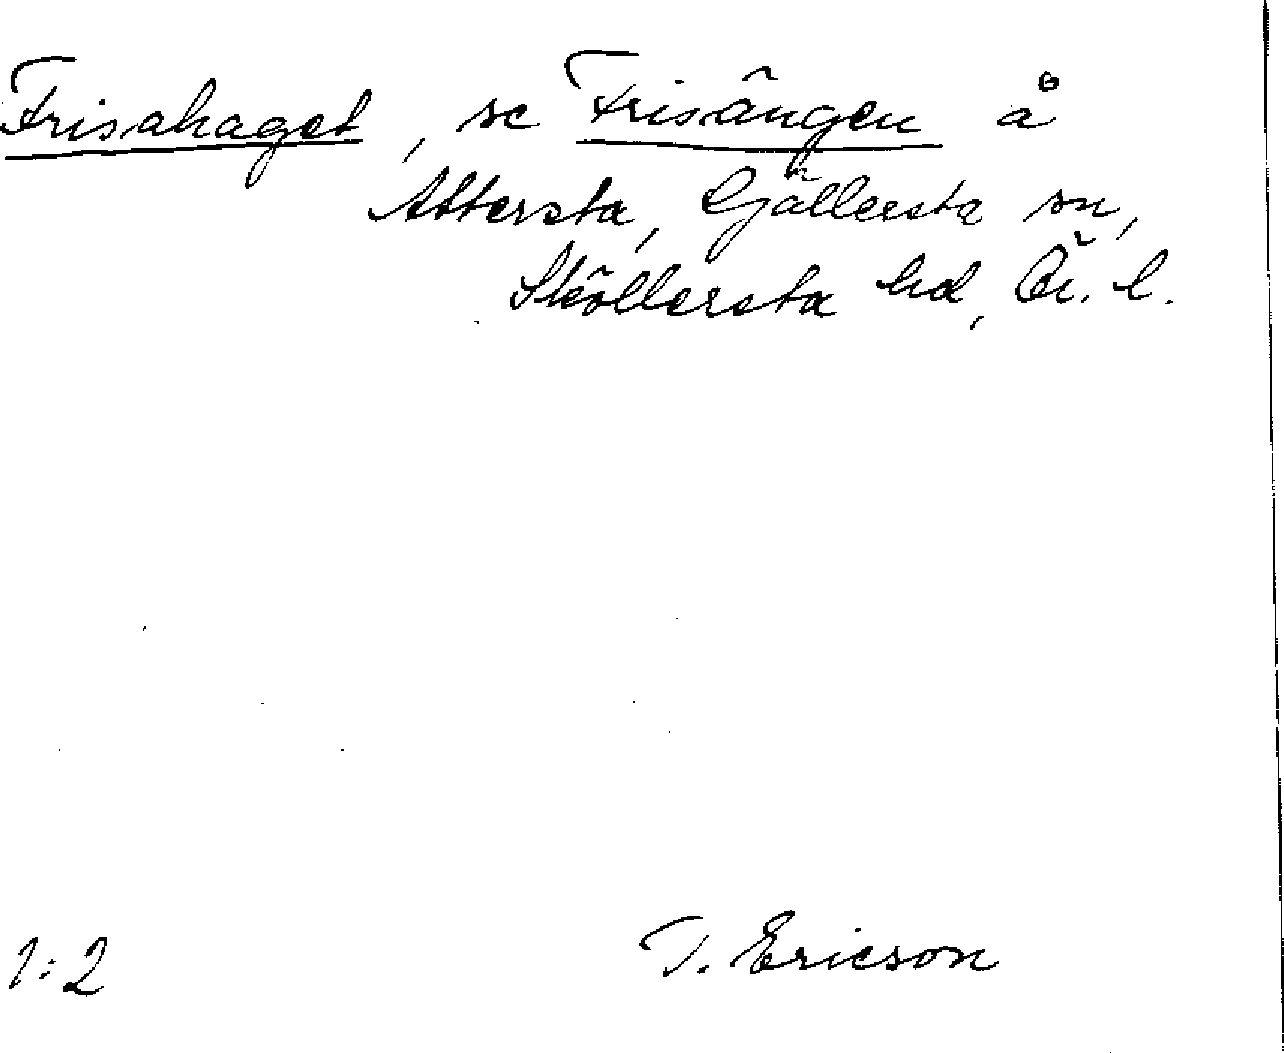 Frisahaget, se Frisängen å
Attersta, Gällersta sn,
Sköllersta hd, Ör. l.
1:2
T. Ericson